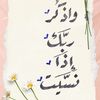 واذكر
ربك
إذا
نسيت